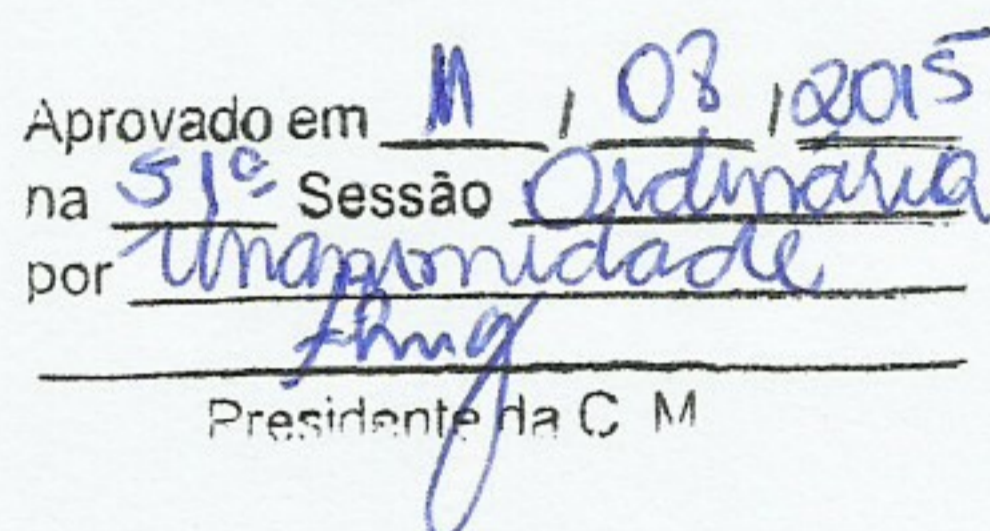 Aprovado em 11 / 08 / 2015
na 51ª Sessão Ordinária
por Unanimidade
Presidente da C M